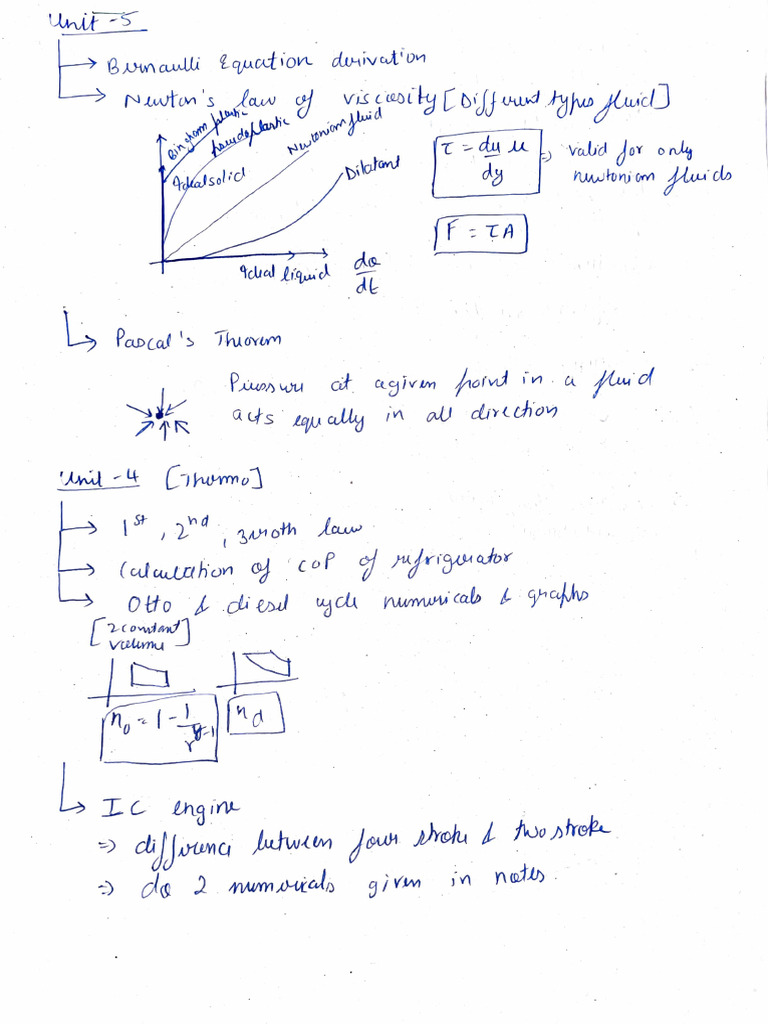 Unit-5
→ Bernaulli Equation derivation
→ Newton's law of viscosity [Different types fluid]
Bingham plastic
pseudoplastic
Newtonian fluid
Ideal solid
Dilatant
Ideal liquid
dθ/dt
τ = du/dy μ ⇒ valid for only newtonian fluids
F = τA
→ Pascal's Theorem
Pressure at a given point in a fluid
acts equally in all direction
Unit-4 [Thermo]
→ 1st, 2nd, 3
law
→ Calculation of COP of refrigerator
→ Otto & diesel cycle numericals & graphs
[2 constant volume]
η₀ = 1 - 1/r^γ-1
ηd
→ IC engine
⇒ difference between four stroke & two stroke
⇒ do 2 numericals given in notes.